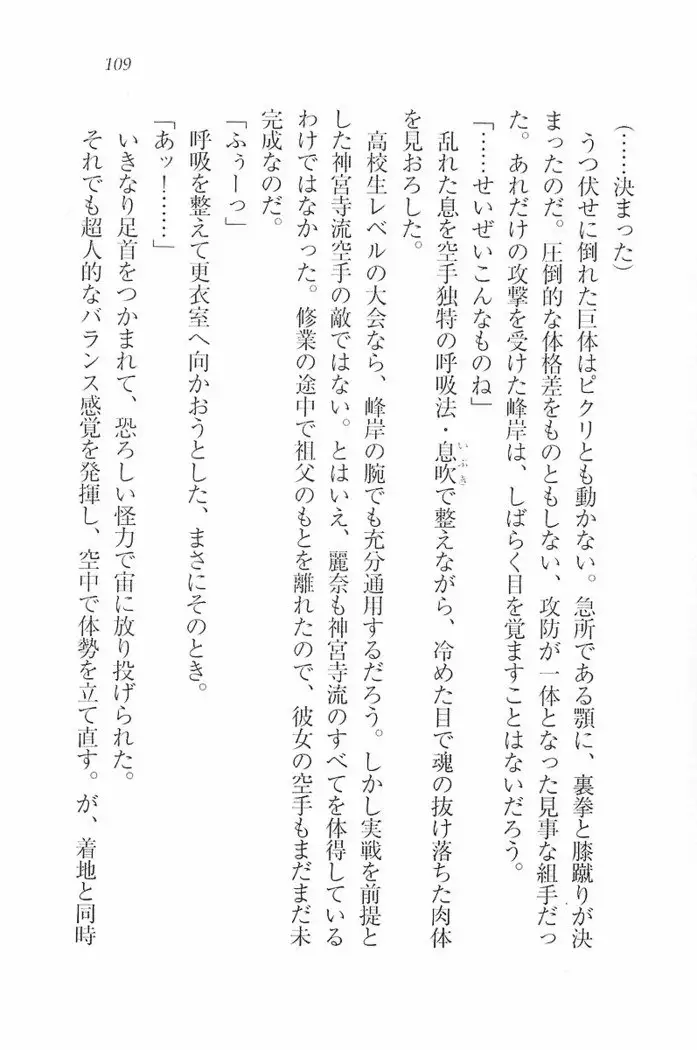 109
(……決まった)
うつ伏せに倒れた巨体はピクリとも動かない。急所である顎に、裏拳と膝蹴りが決
まったのだ。圧倒的な体格差をものともしない、攻防が一体となった見事な組手だっ
た。あれだけの攻撃を受けた峰岸は、しばらく目を覚ますことはないだろう。
「……せいぜいこんなものね」
乱れた息を空手独特の呼吸法・息吹で整えながら、冷めた目で魂の抜け落ちた肉体
いぶき
を見おろした。
高校生レベルの大会なら、峰岸の腕でも充分通用するだろう。しかし実戦を前提と
した神宮寺流空手の敵ではない。とはいえ、麗奈も神宮寺流のすべてを体得している
わけではなかった。修業の途中で祖父のもとを離れたので、彼女の空手もまだまだ未
完成なのだ。
「ふぅーっ」
呼吸を整えて更衣室へ向かおうとした、まさにそのとき。
「あッ!……」
いきなり足首をつかまれて、恐ろしい怪力で宙に放り投げられた。
それでも超人的なバランス感覚を発揮し、空中で体勢を立て直す。が、着地と同時